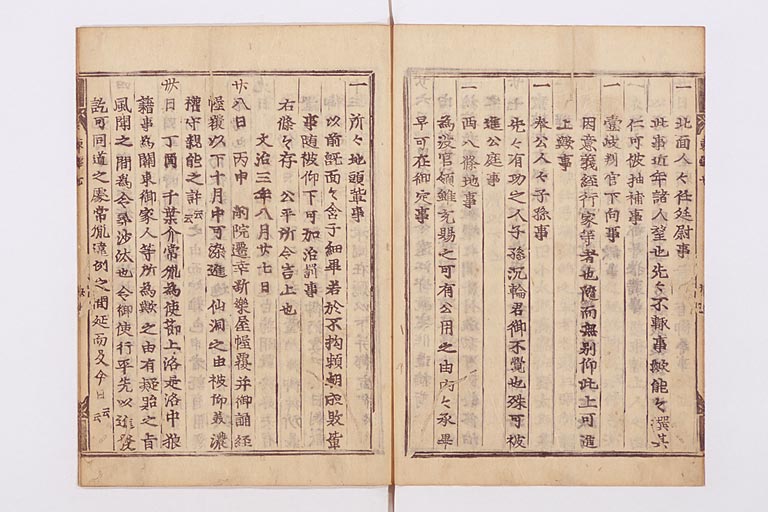 一 北面人々任廷尉事
此事近年諸人望也先々不輙事歟能々撰其
仁可被抽補事
一 壹岐判官下向事
因意義經行家等者也隨而無別仰此上可進
上歟事
一 奉公人々子孫事
先々有功之人子孫沉輪君御不覺也殊可被
進公庭事
一 西八條地事
為没官領雖充賜之可有公用之由内々承畢
早可在御定事
一 所々地頭輩事
以前既面々含子細畢若於不拘頼朝成敗輩
事随被仰下可加治罸事
右條々存 公平所令言上也
文治三年八月廿七日
廿八日 丙申 御院還幸新樂屋幄覆并御誦經
幄覆以下十月中可染進仙洞之由被仰美濃
權守親能之許云云
卅日 丁酉 千葉介常胤為使節上洛是洛中狼
藉事為關東御家人等所為歟之由有疑貽之旨
風聞之間為令尋沙汰也令御使行平先以進發
訖可同道之處常胤違例之間延而及今日云云